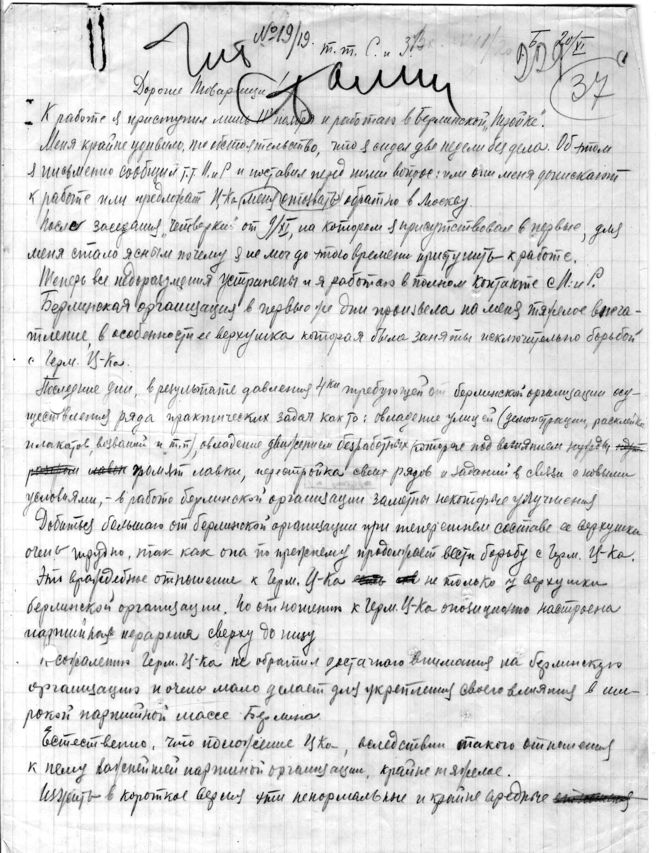 №19/19. т.т. С. и З.
20/XI
37
Дорогие Товарищи!
К работе я приступил лишь 11го ноября и работаю в Берлинской „тройке".
Меня крайне удивило, то обстоятельство, что я сидел две недели без дела. Об этом
я письменно сообщил т.т и Р и поставил перед ними вопрос: или они меня допускают
к работе или предложат Ц-Ка меня отозвать обратно в Москву
После заседания „четверки" от 9/XI, на котором я присутствовал в первые, для
меня стало ясным почему я не мог до этого времени приступить к работе.
Теперь все недоразумения устранены и я работаю в полном контакте с М. и Р.
Берлинская организация в первые же дни произвела на меня тяжелое впеча-
тление, в особенности ее верхушка которая была занята исключительно борьбой
с Герм. Ц-Ка.
Последние дни, в результате давления 4ки требующей от берлинской организации осу-
ществления ряда практических задач как то: овладение улицей (демонстрации, расклейка
плакатов, воззваний и т.п), овладение движением безработных которые под влиянием нужды
громят лавки, перестройка своих рядов и заданий в связи с новыми
условиями, - в работе берлинской организации заметны некоторые улучшения
Добиться большаго от берлинской организации при теперешнем составе ее верхушки
очень трудно, так как она по прежнему продолжает вести борьбу с Герм. Ц-Ка.
Это враждебное отношение к Герм. Ц-Ка не только у верхушки
берлинской организации. По отношению к Герм. Ц-Ка опозиционно настроена
партийная иерархия сверху до низу
к сожалению Герм. Ц-Ка не обратил достачного внимания на берлинскую
организацию и очень мало делает для укрепления своего влияния в ши-
рокой партийной массе Берлина
Естественно, что положение Ц-Ка, вследствии такого отношения
к нему важнейшей партийной организации, крайне тяжелое.
Изжить в короткое время эти ненормальные и крайне вредные